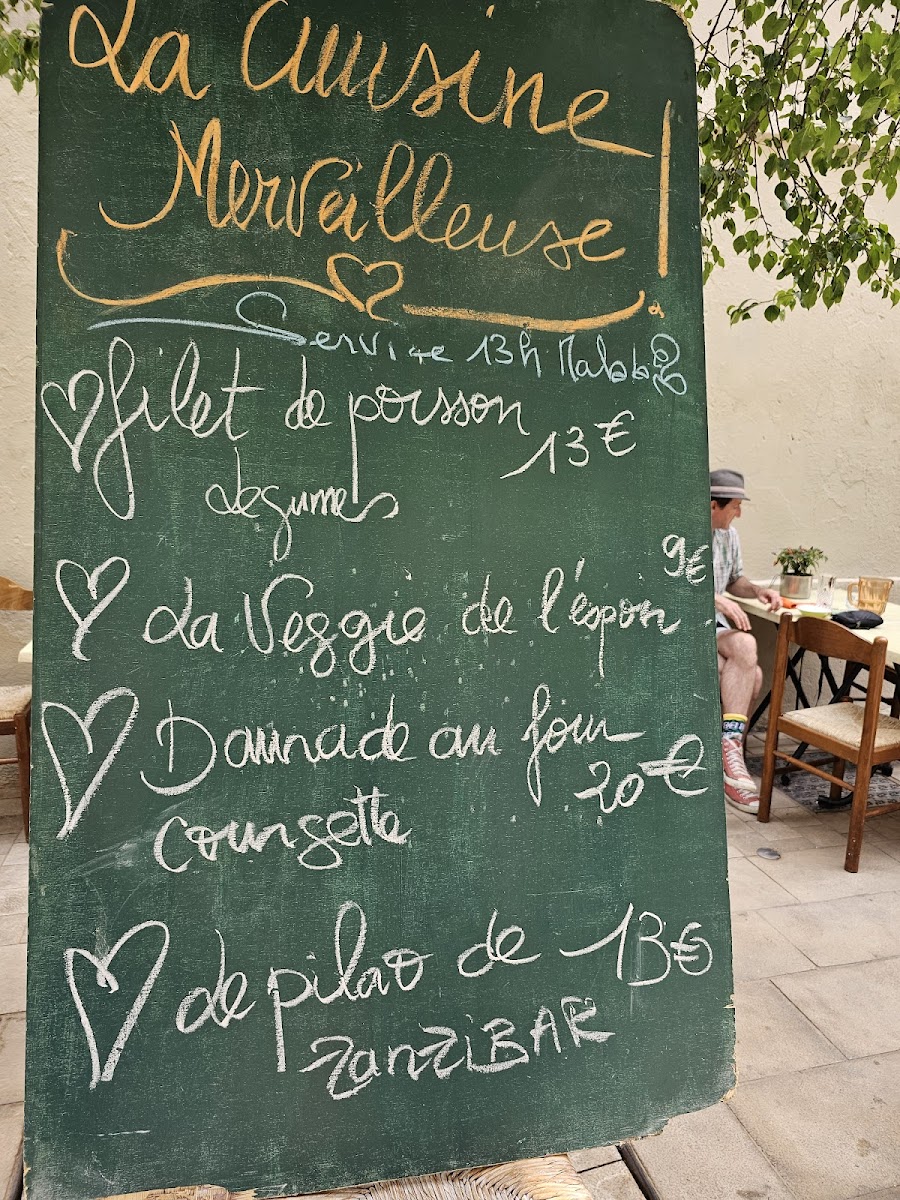 La Cuisine
Merveilleuse !
Service 13h
filet de poisson
13€
légumes
9€
La Veggie de l'épon
Daurade au four
20€
courgette
de pilao de 13€
ZanZiBAR